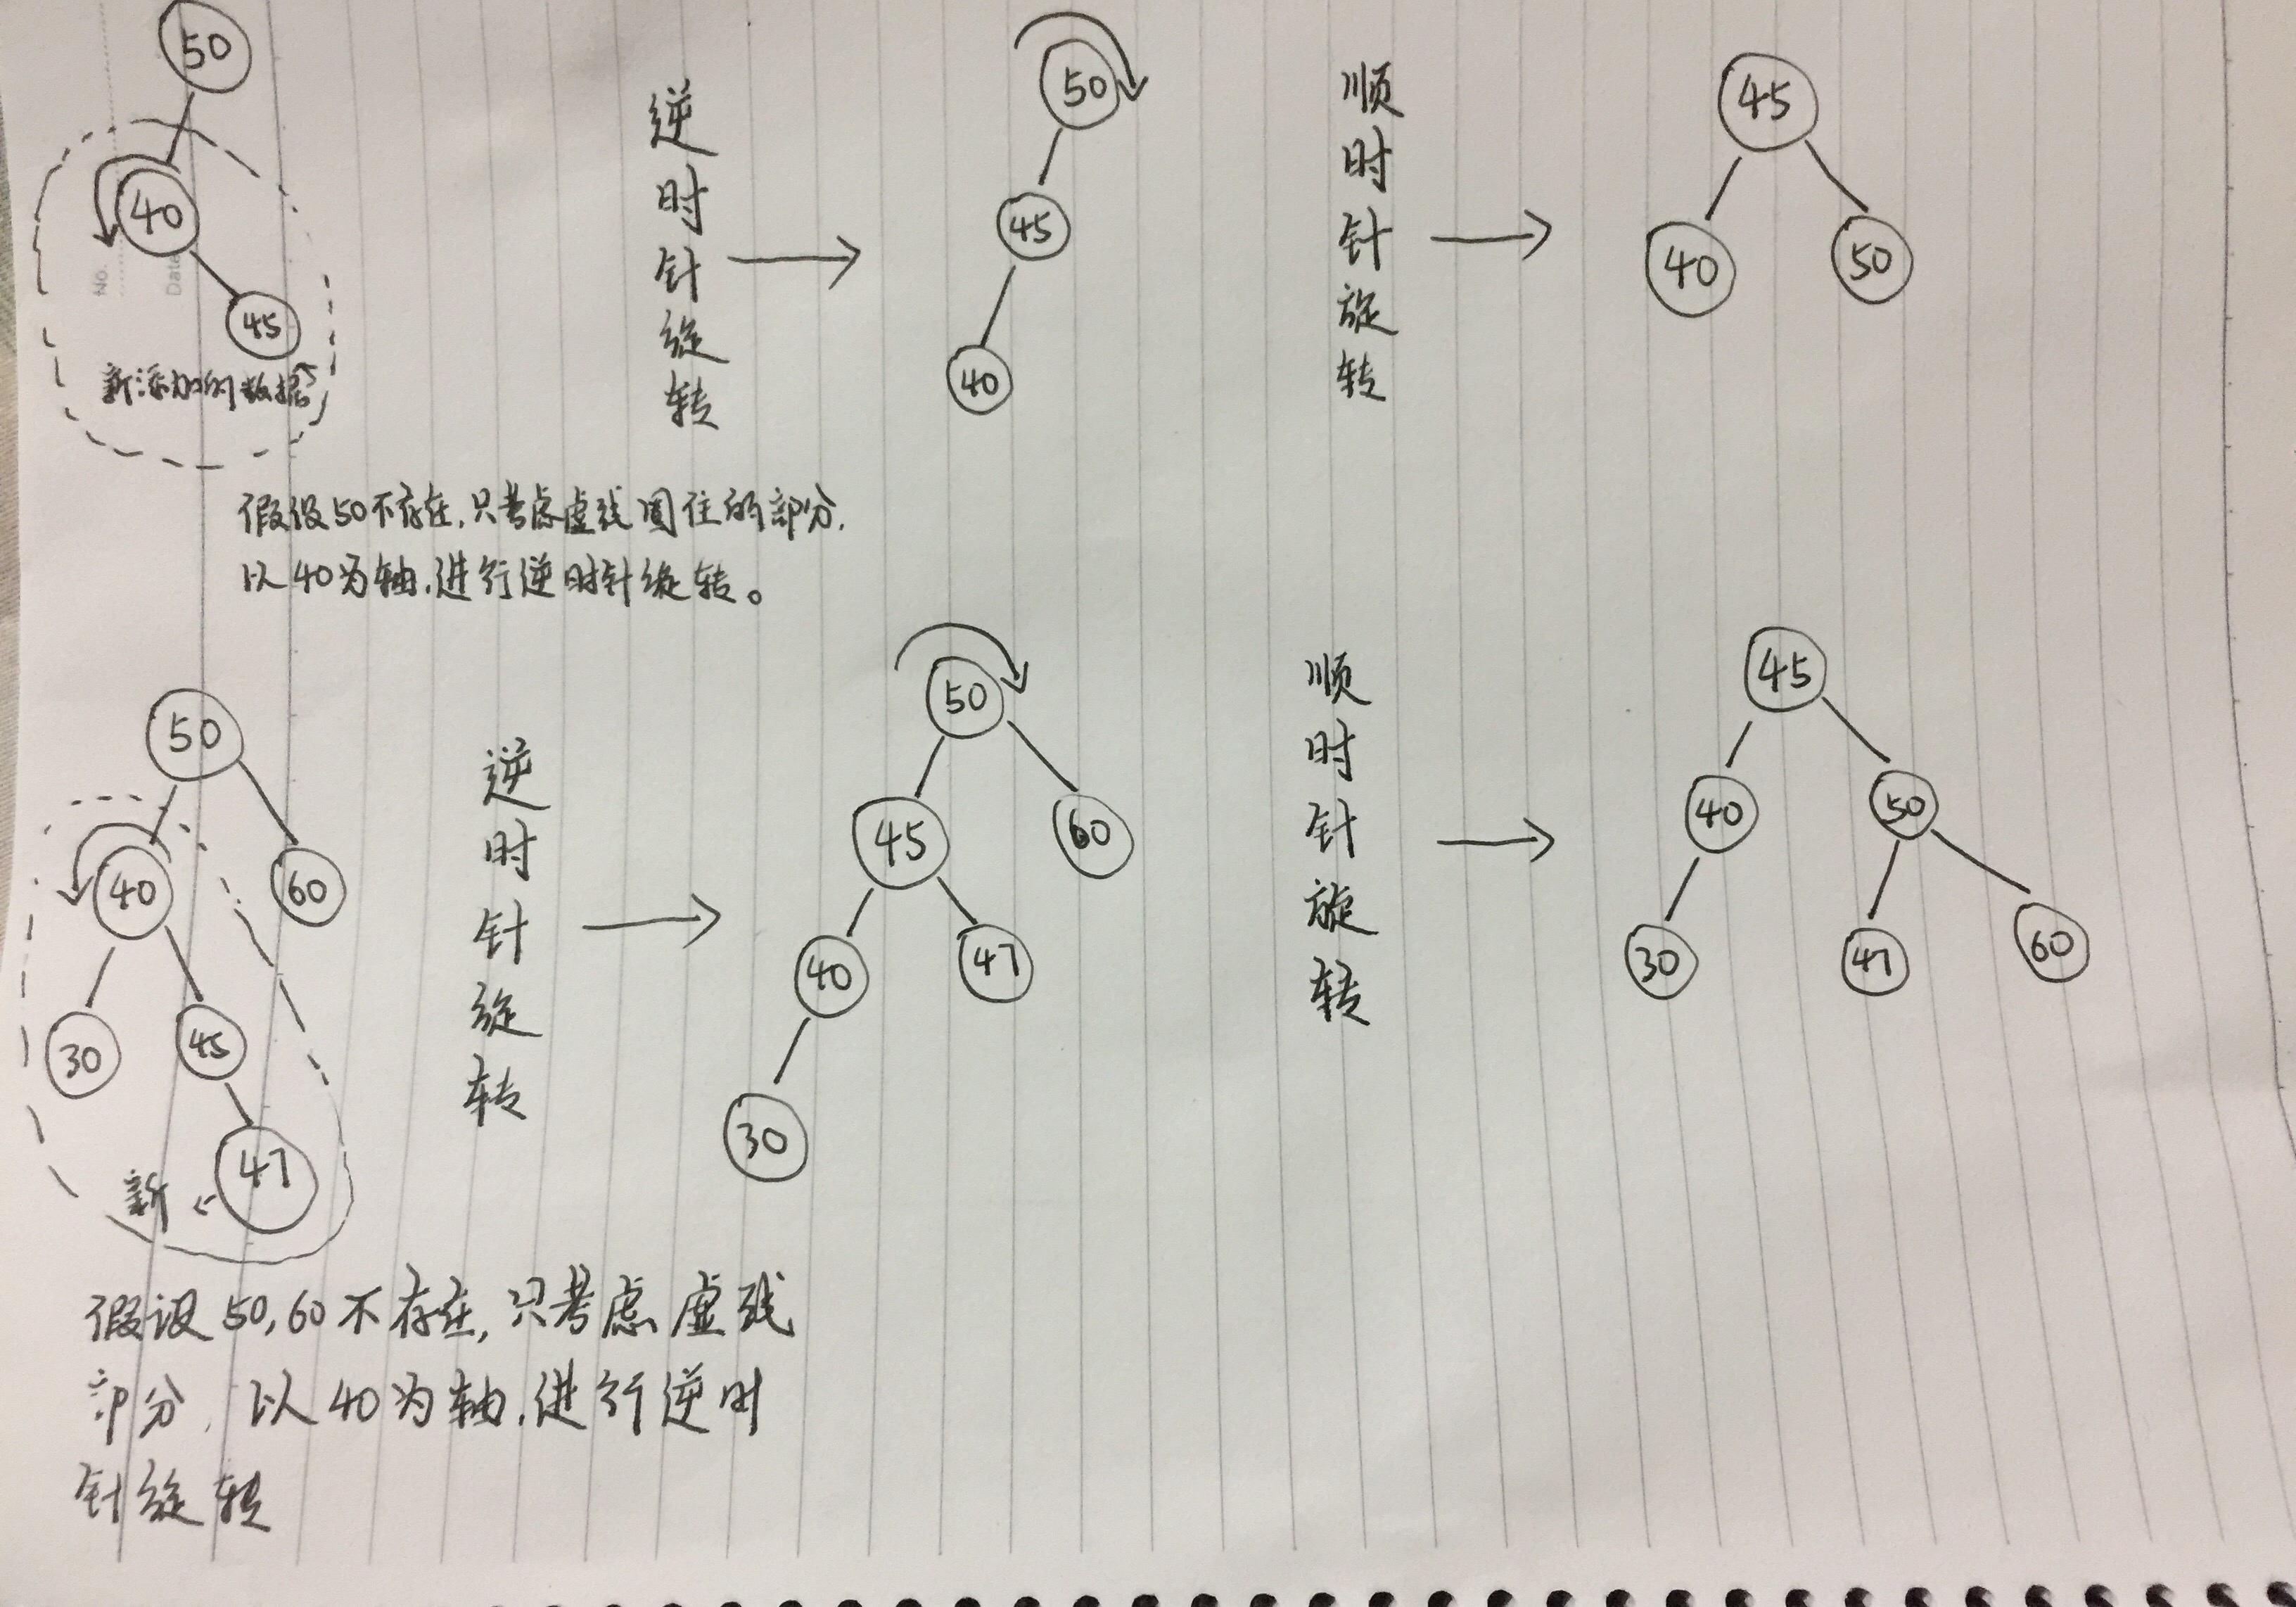 50
40
45
新添加的数据
No.
Date
逆时针旋转
50
45
40
顺时针旋转
45
40
50
假设50不存在,只考虑虚线圈住的部分,
以40为轴,进行逆时针旋转。
50
40
60
30
45
47
新
逆时针旋转
50
45
60
40
47
30
顺时针旋转
45
40
50
30
47
60
假设50,60不存在,只考虑虚线
部分,以40为轴,进行逆时
针旋转